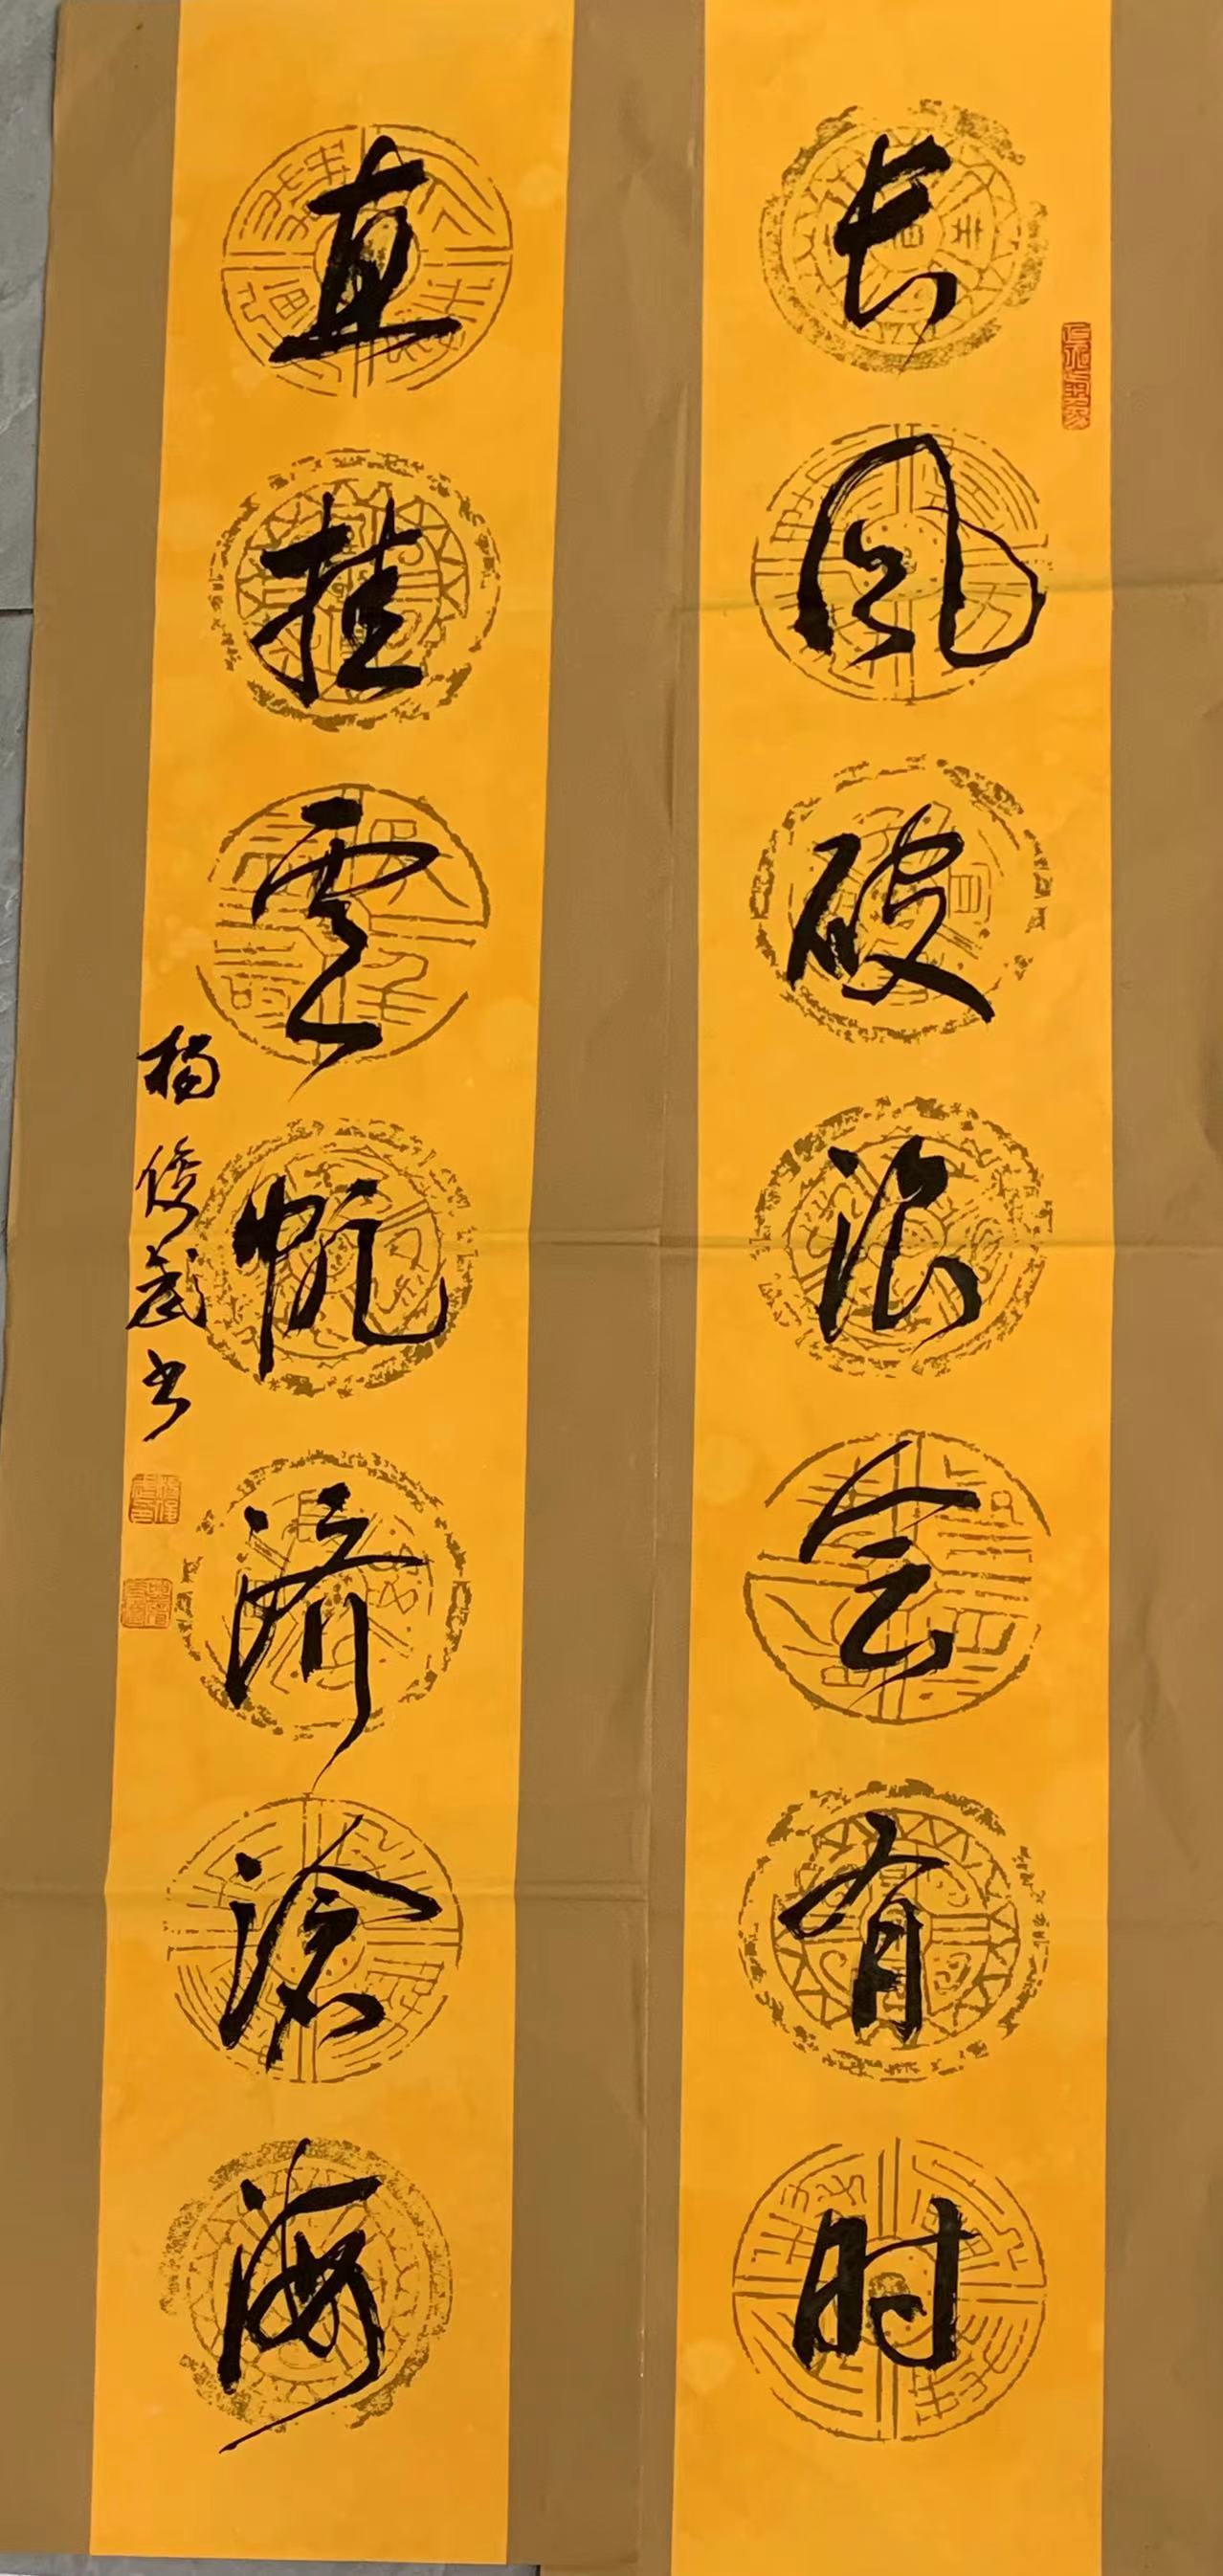 长风破浪会有时
直挂云帆济沧海
杨俊武书